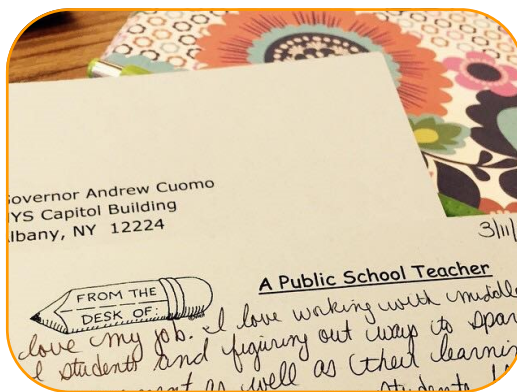 overnor Andrew Cuomo
YS Capitol Building
lbany, NY 12224
3/11/
FROM THE
DESK OF:
A Public School Teacher
love my job. I love working with middle
l students and figuring out ways to spar
ment as well as (their learnin
students